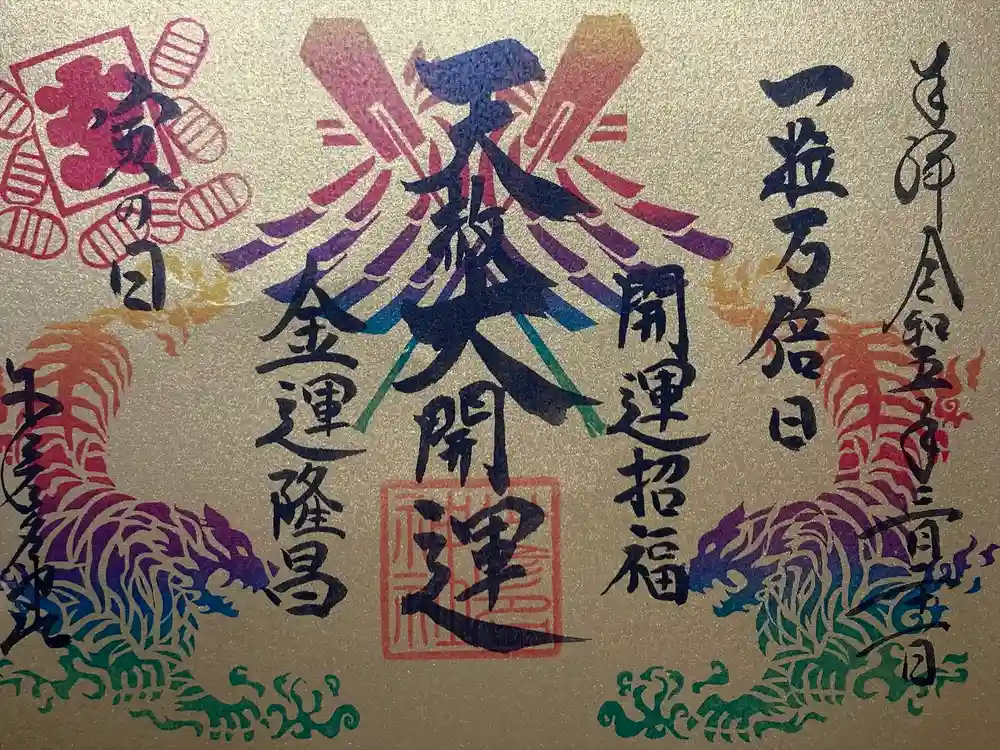 奉拝 令和五年三月二十一日
一粒万倍日
開運招福
天赦大開運
金運隆昌
寅の日
神社